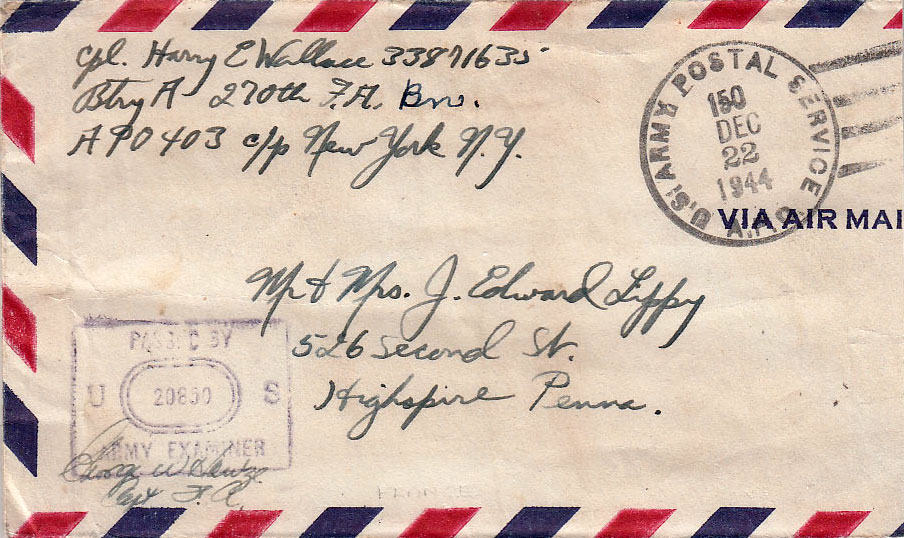 Cpl. Harry E Wallace 33871635
Btry A 270th F.A. Bn.
APO 403 c/p New York N.Y.
U.S. ARMY POSTAL SERVICE
A.P.O.
150
DEC
22
1944
VIA AIR MAI
Mr & Mrs. J. Edward Lippy
526 Second St.
Highspire Penna.
PASSED BY
U 20800 S
ARMY EXAMINER
George W
Capt F. A.